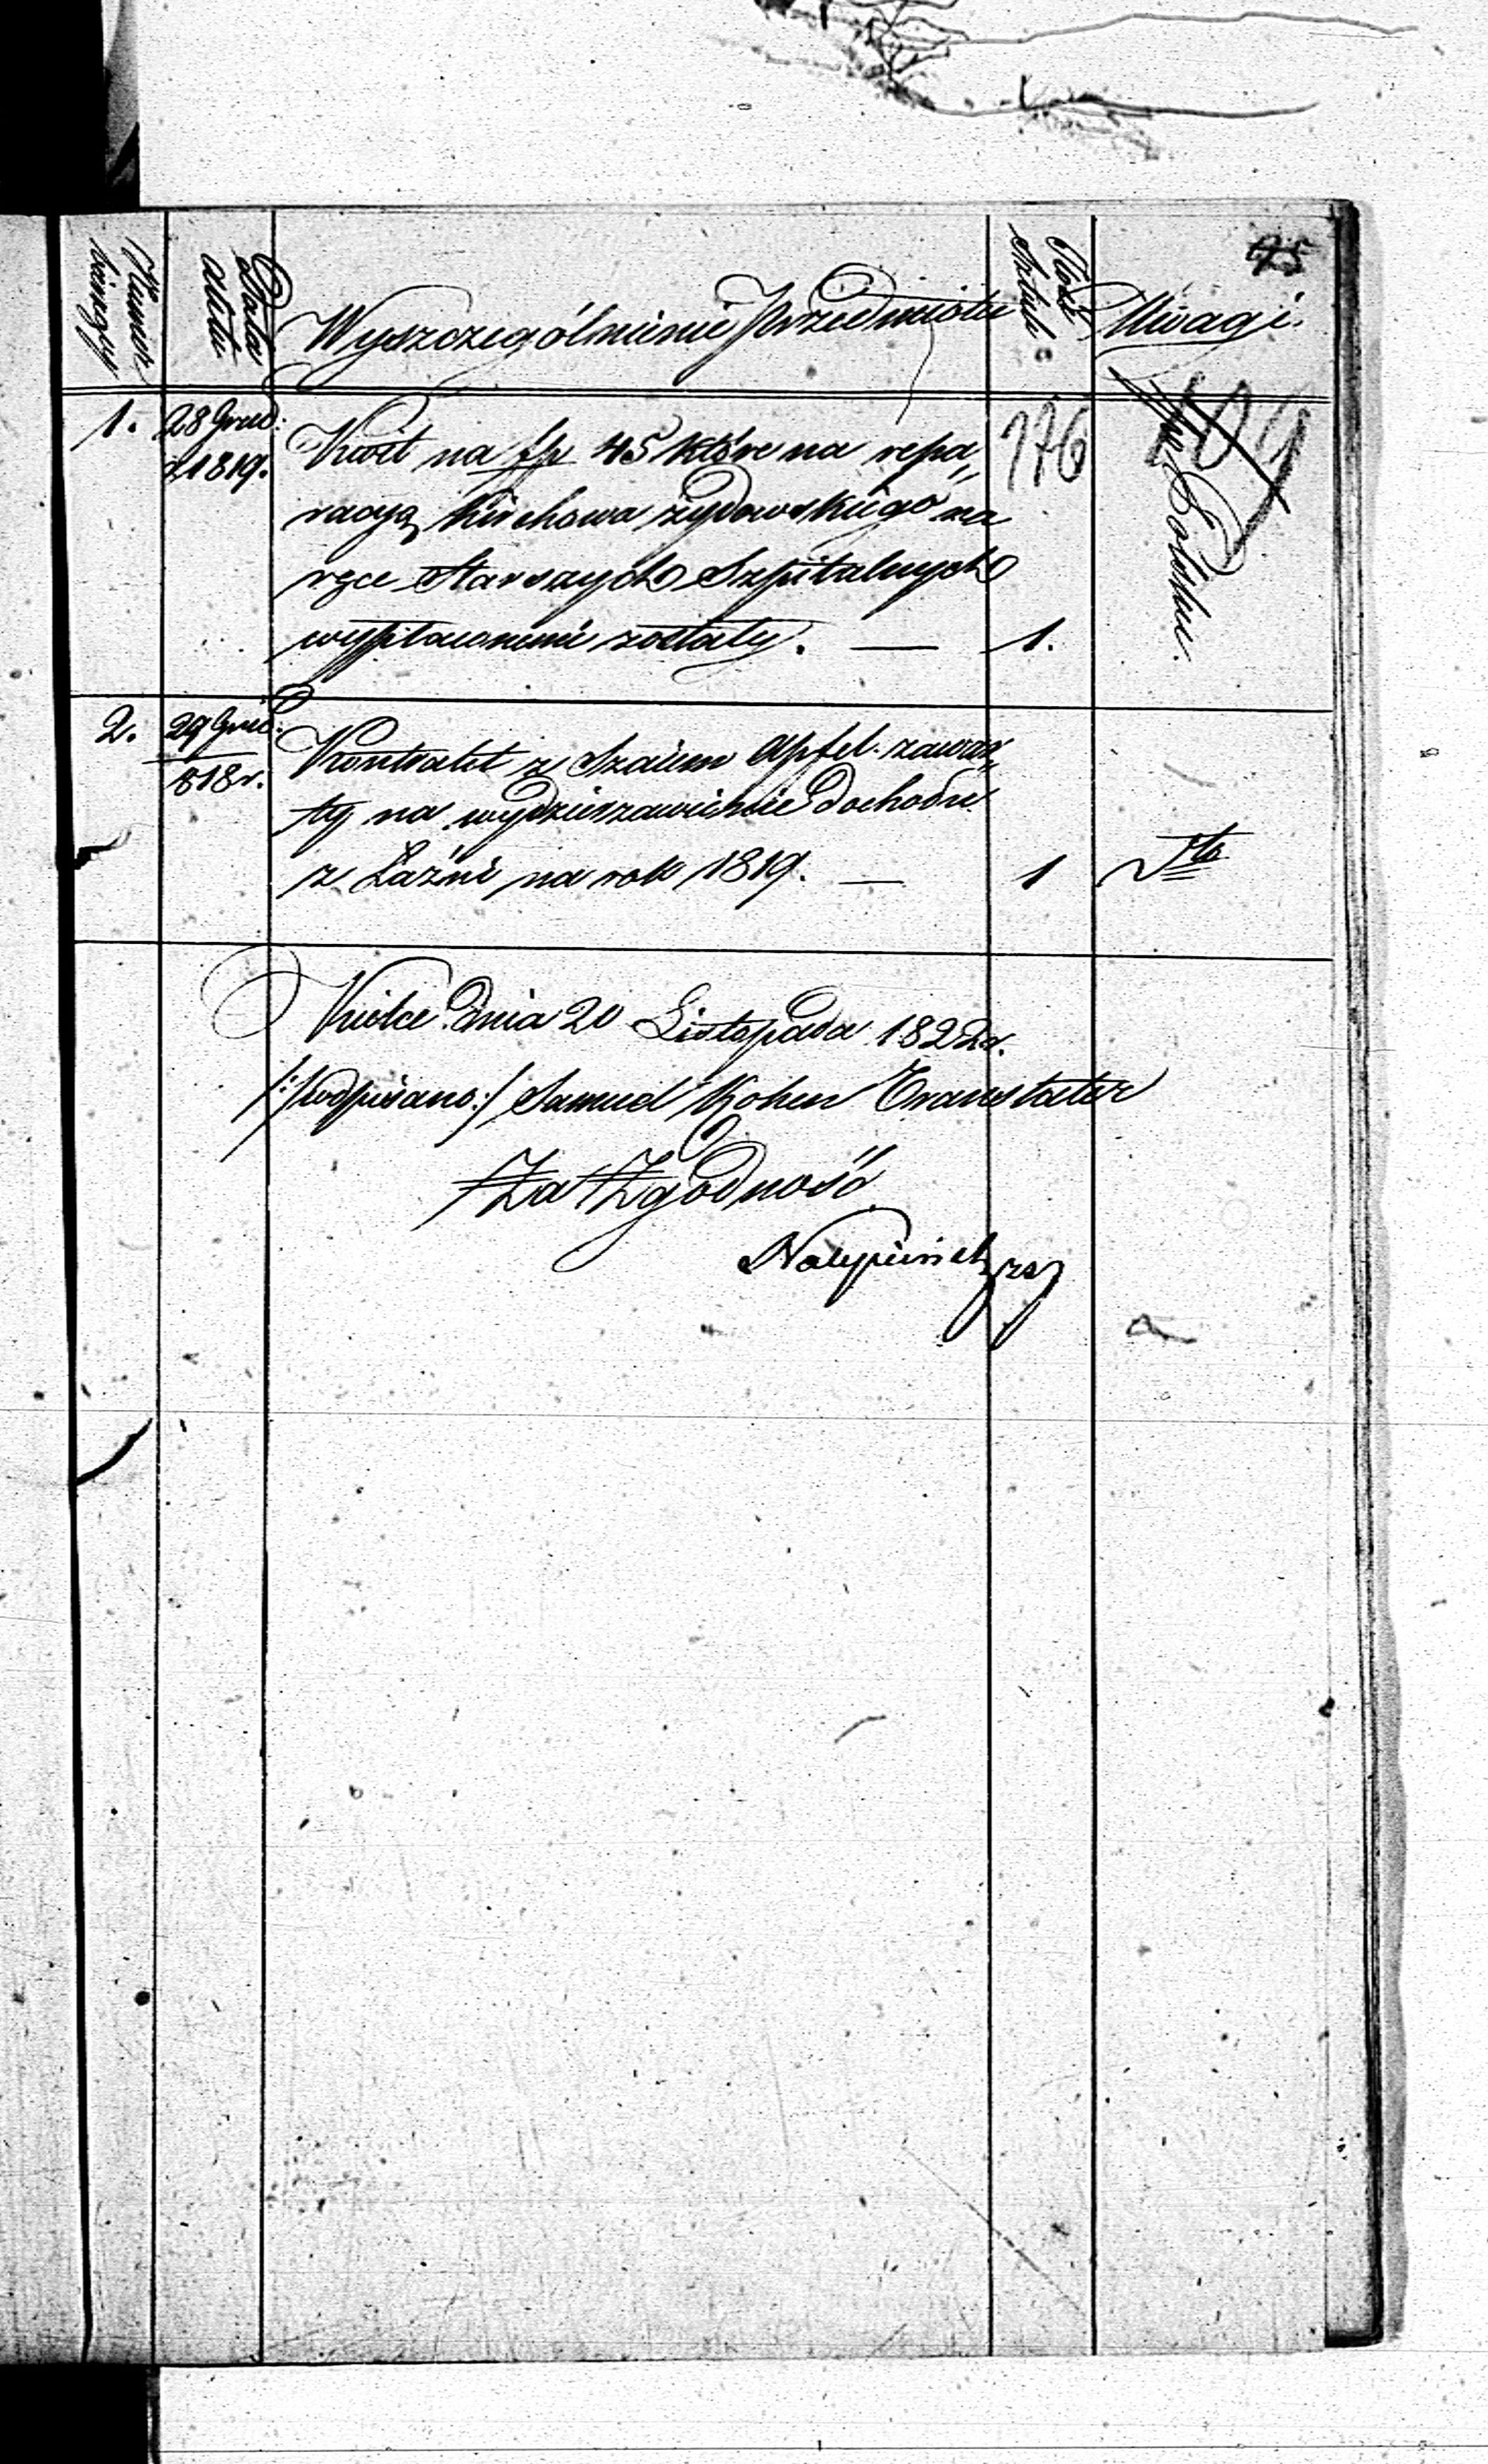 75
Numer bieżący
Data aktu
Wyszczególnienie Przedmiotu
Ilość Sztuk
Uwagi.
1.
28 Grud:
1819.
Kwit na fp 45 które na repa„
racyą kirchowa żydowskiego na
ręce Starszych Szpitalnych
wypłaconemi zostały. —
176
1.
po Polsku.
2.
29 Grud:
818 r.
Kontrakt z Szaiem Apfel. zawar„
ty na wydzierzawienie dochodu
z Łaźni na rok 1819. —
1
Dto
Kielce dnia 20 Listopada 1822 r.
/:podpisano:/ Samuel Kohen
Za Zgodność